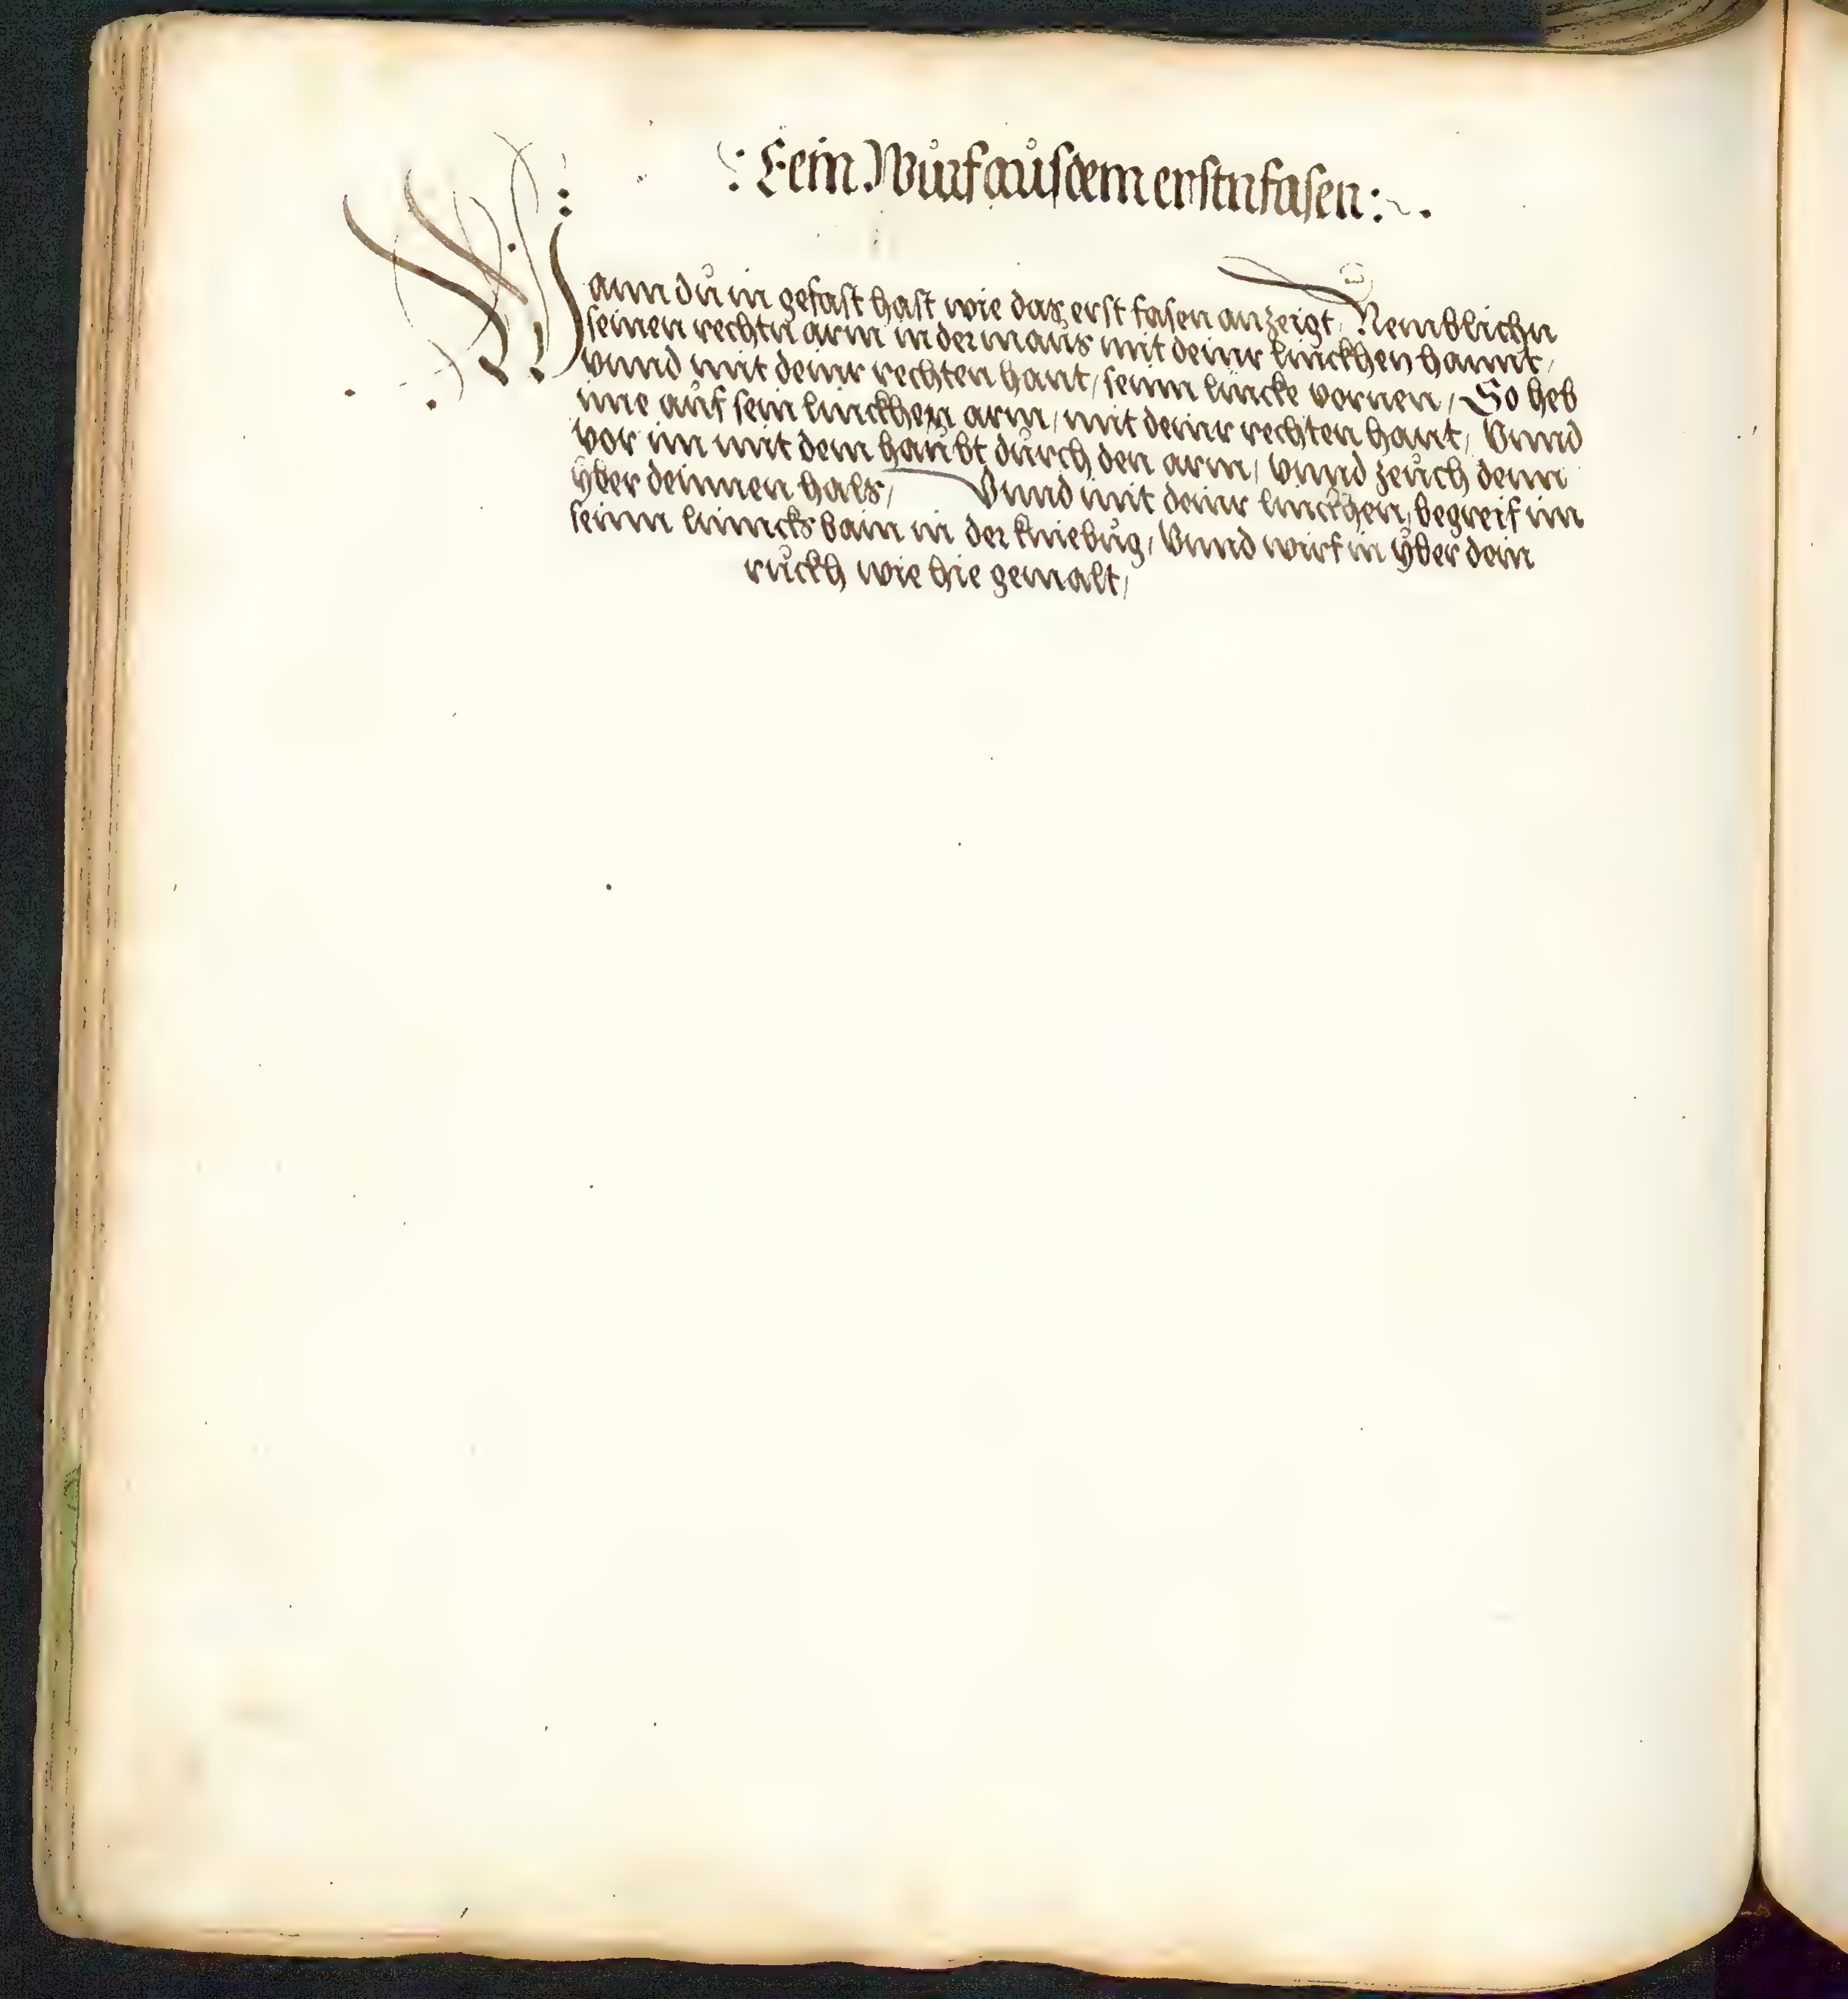 : Eein Wůrf aůs dem erstn fasen :~.
Wann dů in gefast hast wie das erst fasen anzeigt, Nemblichn
seinen rechtn arm in der maůs mit deinr linckhen hannt,
vnnd mit deinr rechten hant, seinn lincke vornen, So heb
ime aůf sein linckhen arm, mit deinr rechten hant, Vnnd
vor im mit dem haůbt důrch den arm, Vnnd zeůch denn
ÿber deinnen hals, Vnnd mit deinr linckhen, begreif im
seinn linncks bain in der kniebůg, Vnnd wirf in ÿber dein
růckh wie hie gemalt,